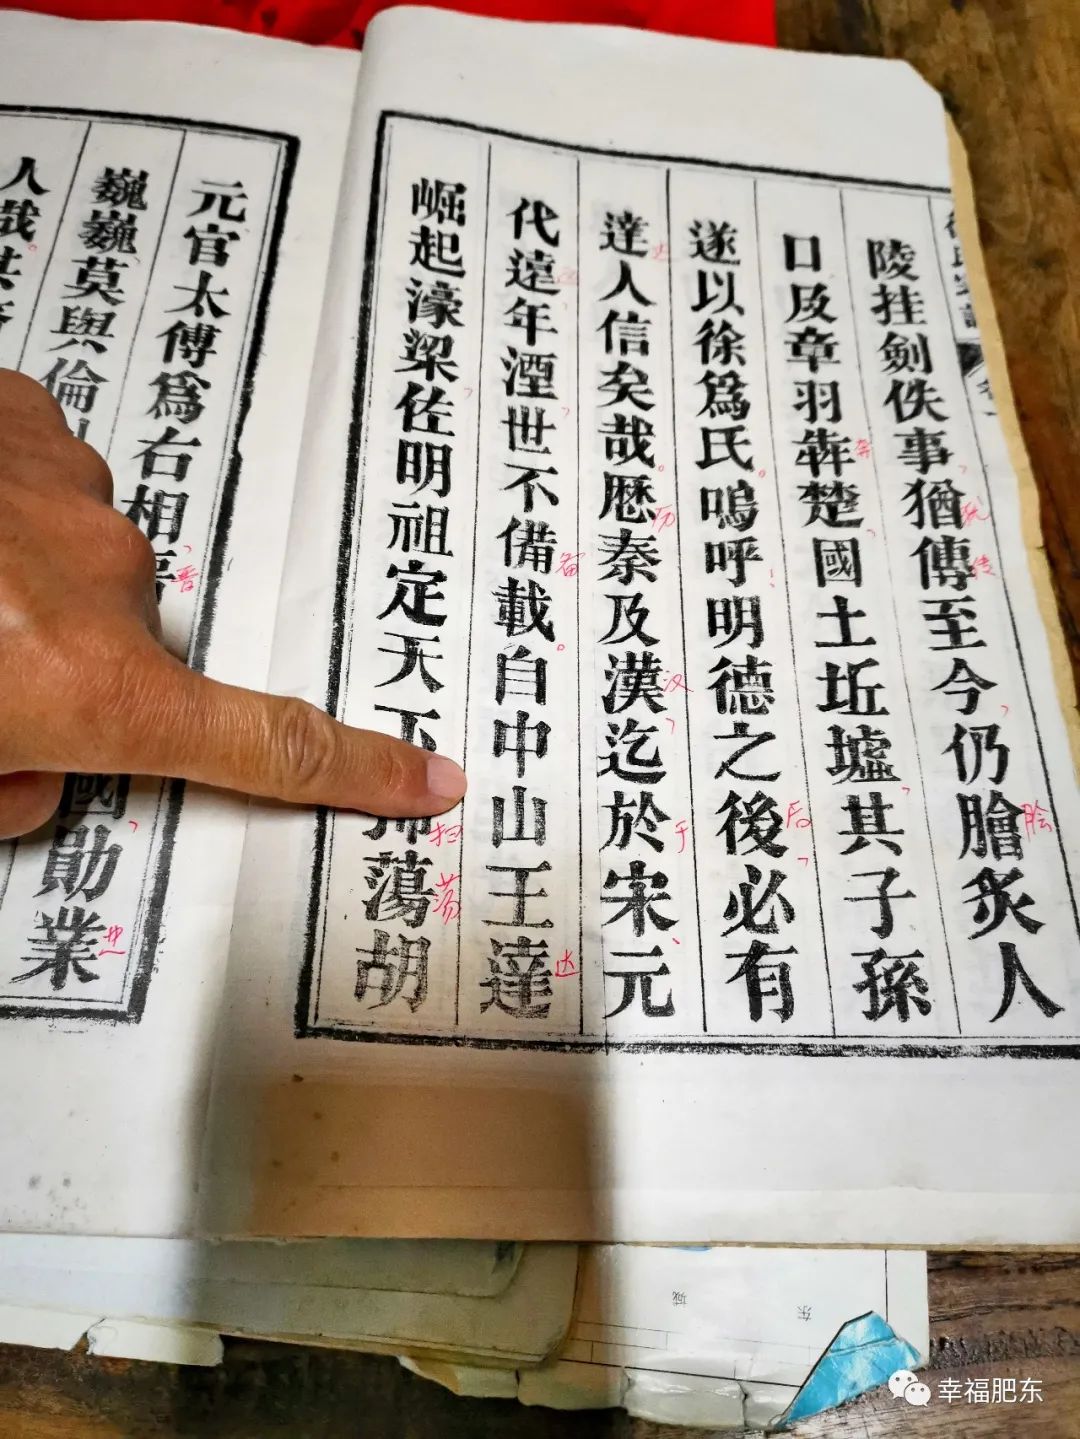 氏家譜
陵挂劍佚事、猶傳至今、仍膾炙人
犹
传
脍
口及章羽犇楚、國土坵墟、其子孫
奔
遂以徐爲氏。嗚呼！明德之後、必有
后
達人信矣哉。厯秦及漢、迄於宋、元
达
历
汉
于
代遠年、湮世、不備載。自中山王達
备
达
崛起濠梁、佐明祖定天下掃蕩胡
扫
荡
元官太傅爲右相、晉
晋
巍巍莫與倫
國、勛業
人哉。其
城
东
幸福肥东